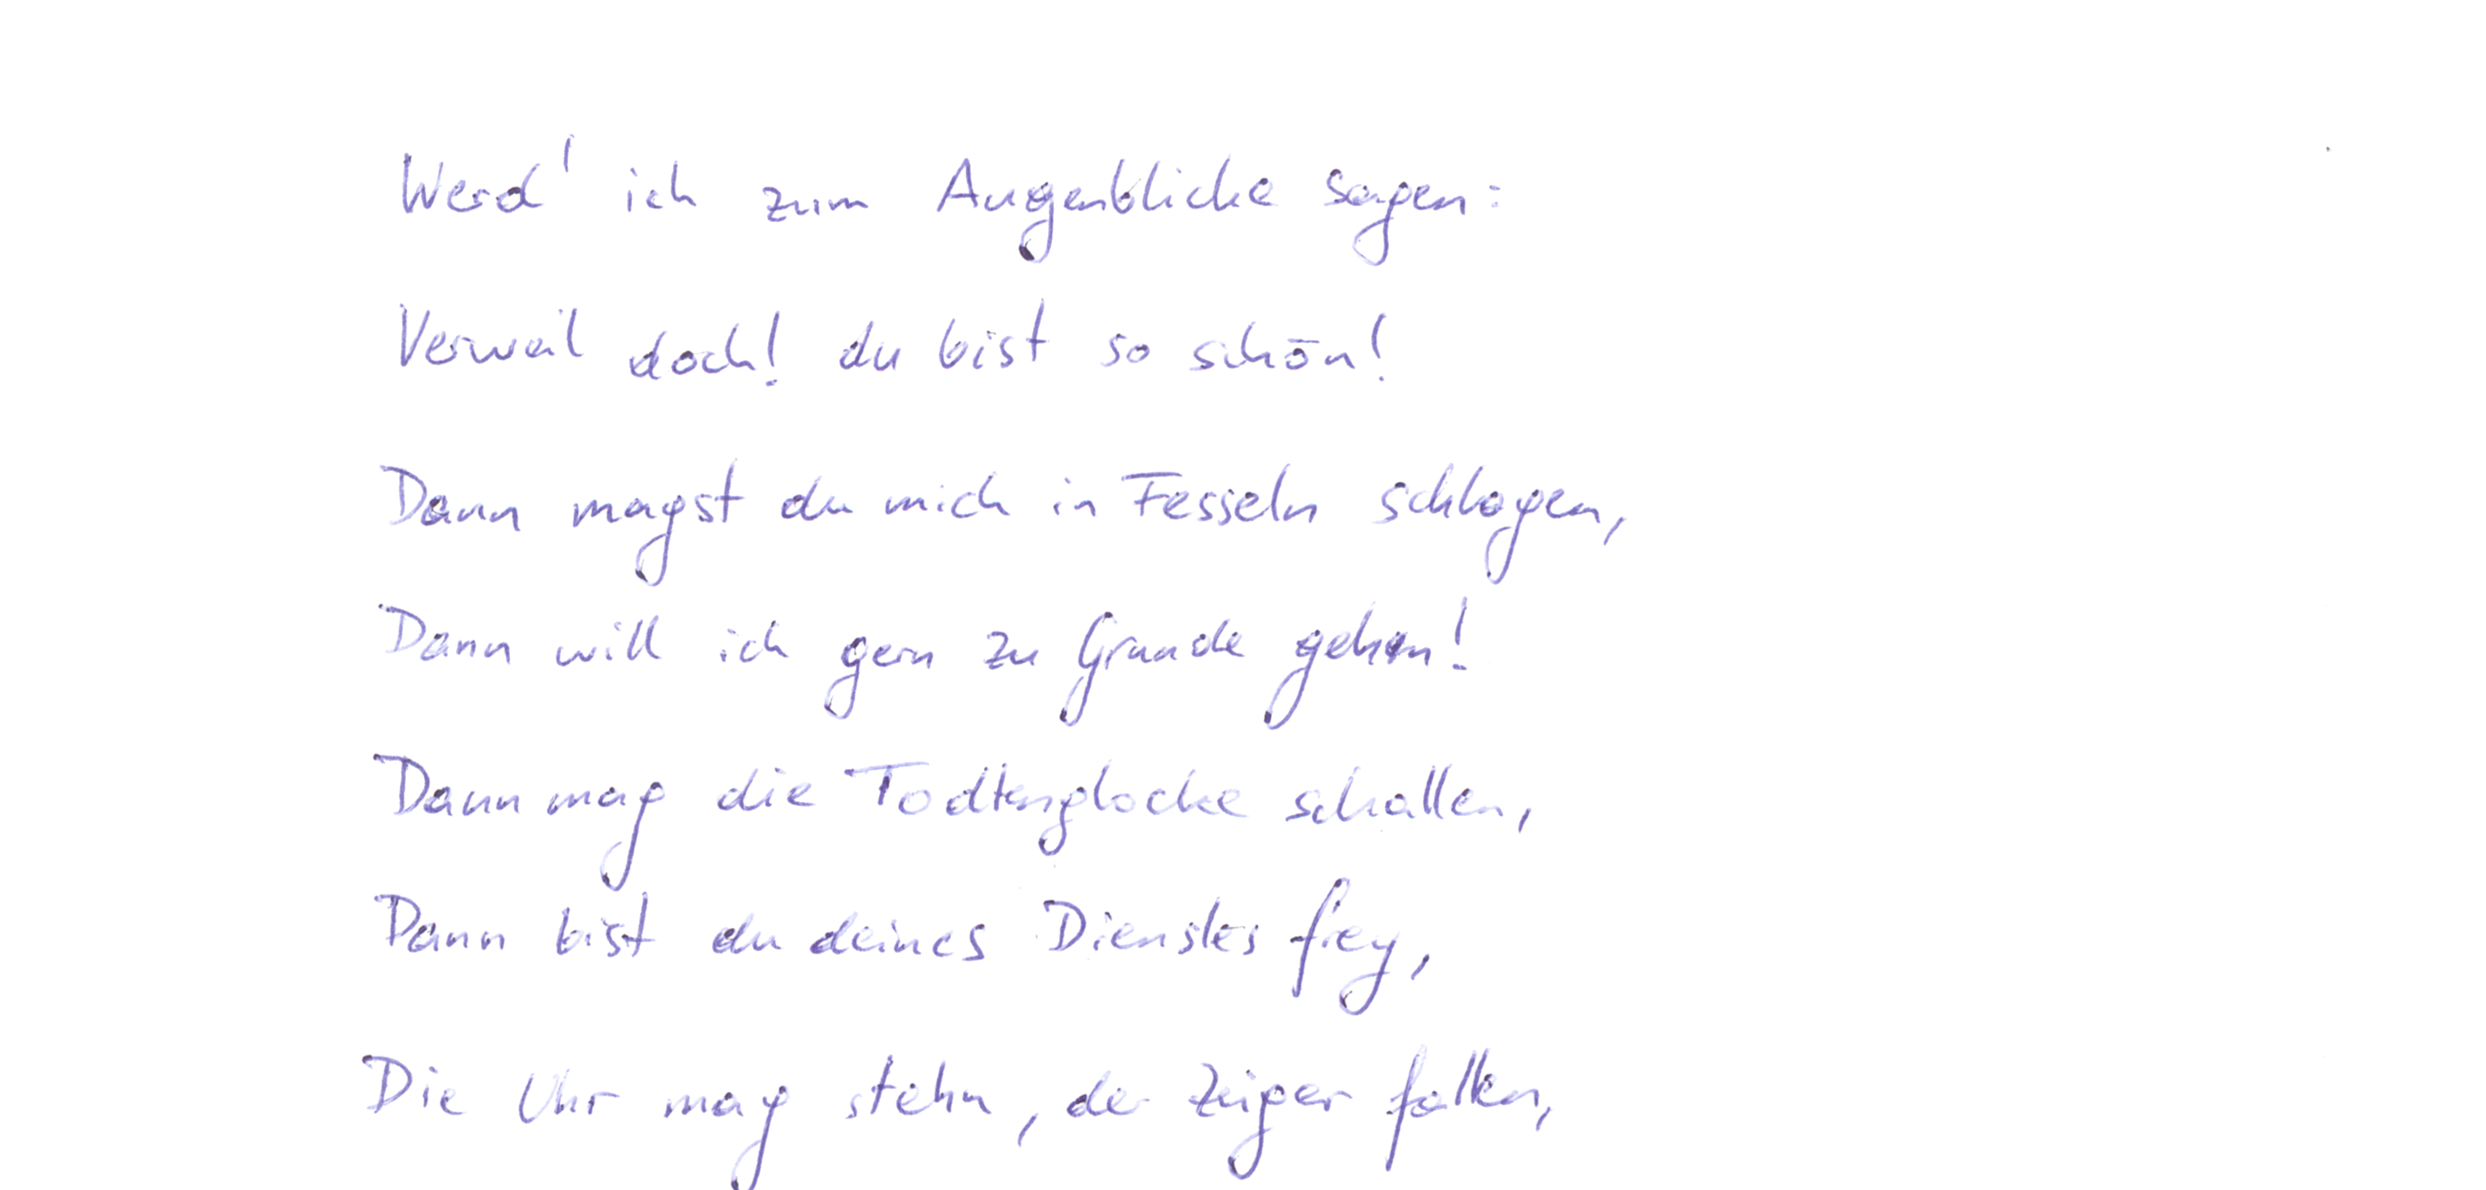 Werd' ich zum Augenblicke sagen:
Verweil doch! du bist so schön!
Dann magst du mich in Fesseln schlagen,
Dann will ich gern zu Grunde gehen!
Dann mag die Todtenglocke schallen,
Dann bist du deines Dienstes frey,
Die Uhr mag stehn, der Zeiger fallen,